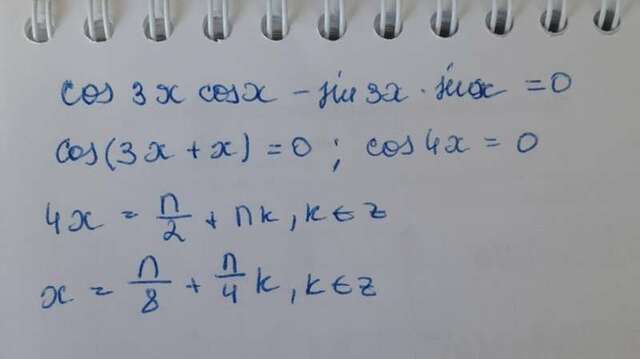 cos 3x cosx - sin 3x · sinx = 0
cos(3x + x) = 0 ; cos 4x = 0
4x = π/2 + πk, k ∈ z
x = π/8 + π/4 k, k ∈ z